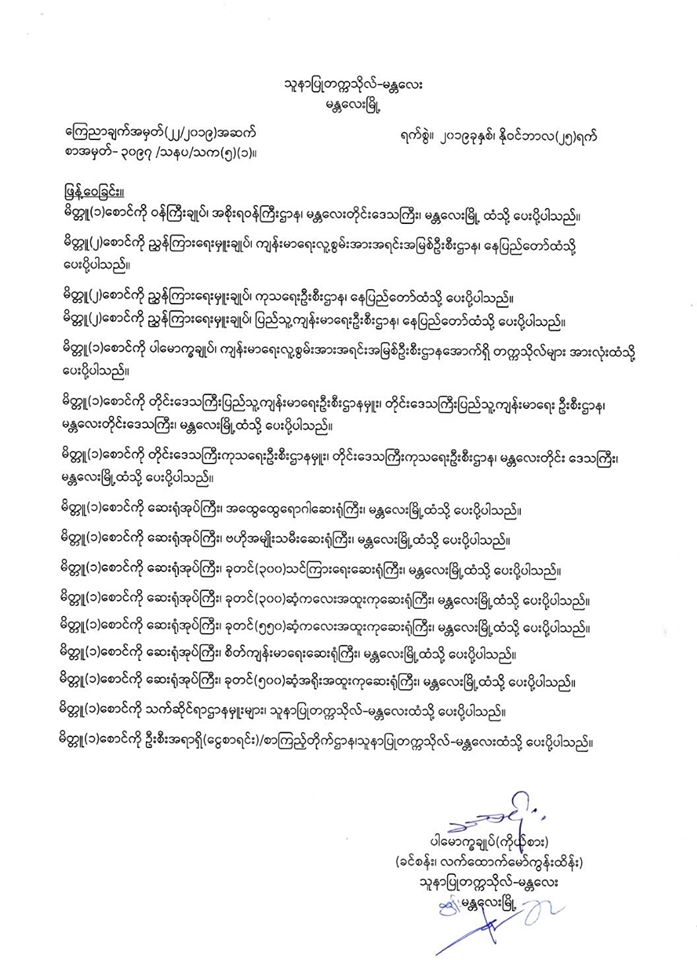 သူနာပြုတက္ကသိုလ်-မန္တလေး
မန္တလေးမြို့
ကြေညာချက်အမှတ်(၂၂/၂၀၁၉)အဆက်
ရက်စွဲ။ ၂၀၁၉ခုနှစ်၊ နိုဝင်ဘာလ(၂၅)ရက်
စာအမှတ်- ၃၀၉၇ /သနပ/သက(၅)(၁)။
ဖြန့်ဝေခြင်း။
မိတ္တူ(၁)စောင်ကို ဝန်ကြီးချုပ်၊ အစိုးရဝန်ကြီးဌာန၊ မန္တလေးတိုင်းဒေသကြီး၊ မန္တလေးမြို့ ထံသို့ ပေးပို့ပါသည်။
မိတ္တူ(၂)စောင်ကို ညွှန်ကြားရေးမှူးချုပ်၊ ကျန်းမာရေးလူ့စွမ်းအားအရင်းအမြစ်ဦးစီးဌာန၊ နေပြည်တော်ထံသို့
ပေးပို့ပါသည်။
မိတ္တူ(၂)စောင်ကို ညွှန်ကြားရေးမှူးချုပ်၊ ကုသရေးဦးစီးဌာန၊ နေပြည်တော်ထံသို့ ပေးပို့ပါသည်။
မိတ္တူ(၂)စောင်ကို ညွှန်ကြားရေးမှူးချုပ်၊ ပြည်သူ့ကျန်းမာရေးဦးစီးဌာန၊ နေပြည်တော်ထံသို့ ပေးပို့ပါသည်။
မိတ္တူ(၁)စောင်ကို ပါမောက္ခချုပ်၊ ကျန်းမာရေးလူ့စွမ်းအားအရင်းအမြစ်ဦးစီးဌာနအောက်ရှိ တက္ကသိုလ်များ အားလုံးထံသို့
ပေးပို့ပါသည်။
မိတ္တူ(၁)စောင်ကို တိုင်းဒေသကြီးပြည်သူ့ကျန်းမာရေးဦးစီးဌာနမှူး၊ တိုင်းဒေသကြီးပြည်သူ့ကျန်းမာရေး ဦးစီးဌာန၊
မန္တလေးတိုင်းဒေသကြီး၊ မန္တလေးမြို့ထံသို့ ပေးပို့ပါသည်။
မိတ္တူ(၁)စောင်ကို တိုင်းဒေသကြီးကုသရေးဦးစီးဌာနမှူး၊ တိုင်းဒေသကြီးကုသရေးဦးစီးဌာန၊ မန္တလေးတိုင်း ဒေသကြီး၊
မန္တလေးမြို့ထံသို့ ပေးပို့ပါသည်။
မိတ္တူ(၁)စောင်ကို ဆေးရုံအုပ်ကြီး၊ အထွေထွေရောဂါဆေးရုံကြီး၊ မန္တလေးမြို့ထံသို့ ပေးပို့ပါသည်။
မိတ္တူ(၁)စောင်ကို ဆေးရုံအုပ်ကြီး၊ ဗဟိုအမျိုးသမီးဆေးရုံကြီး၊ မန္တလေးမြို့ထံသို့ ပေးပို့ပါသည်။
မိတ္တူ(၁)စောင်ကို ဆေးရုံအုပ်ကြီး၊ ခုတင်(၃၀၀)သင်ကြားရေးဆေးရုံကြီး၊ မန္တလေးမြို့ထံသို့ ပေးပို့ပါသည်။
မိတ္တူ(၁)စောင်ကို ဆေးရုံအုပ်ကြီး၊ ခုတင်(၃၀၀)ဆံ့ကလေးအထူးကုဆေးရုံကြီး၊ မန္တလေးမြို့ထံသို့ ပေးပို့ပါသည်။
မိတ္တူ(၁)စောင်ကို ဆေးရုံအုပ်ကြီး၊ ခုတင်(၅၅၀)ဆံ့ကလေးအထူးကုဆေးရုံကြီး၊ မန္တလေးမြို့ထံသို့ ပေးပို့ပါသည်။
မိတ္တူ(၁)စောင်ကို ဆေးရုံအုပ်ကြီး၊ စိတ်ကျန်းမာရေးဆေးရုံကြီး၊ မန္တလေးမြို့ထံသို့ ပေးပို့ပါသည်။
မိတ္တူ(၁)စောင်ကို ဆေးရုံအုပ်ကြီး၊ ခုတင်(၅၀၀)ဆံ့အရိုးအထူးကုဆေးရုံကြီး၊ မန္တလေးမြို့ထံသို့ ပေးပို့ပါသည်။
မိတ္တူ(၁)စောင်ကို သက်ဆိုင်ရာဌာနမှူးများ၊ သူနာပြုတက္ကသိုလ်-မန္တလေးထံသို့ ပေးပို့ပါသည်။
မိတ္တူ(၁)စောင်ကို ဦးစီးအရာရှိ(ငွေစာရင်း)/စာကြည့်တိုက်ဌာန၊သူနာပြုတက္ကသိုလ်-မန္တလေးထံသို့ ပေးပို့ပါသည်။
ပါမောက္ခချုပ်(ကိုယ်စား)
(ခင်စန်း၊ လက်ထောက်မော်ကွန်းထိန်း)
သူနာပြုတက္ကသိုလ်-မန္တလေး
မန္တလေးမြို့